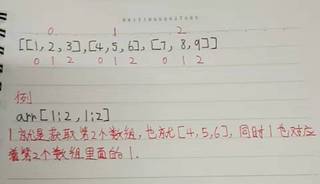 0 1 2
[[1,2,3],[4,5,6],[7,8,9]]
0 1 2 0 1 2 0 1 2
例
arr[1:2,1:2]
1 就是获取第2个数组，也就[4,5,6]，同时1也对应
着第2个数组里面的1.